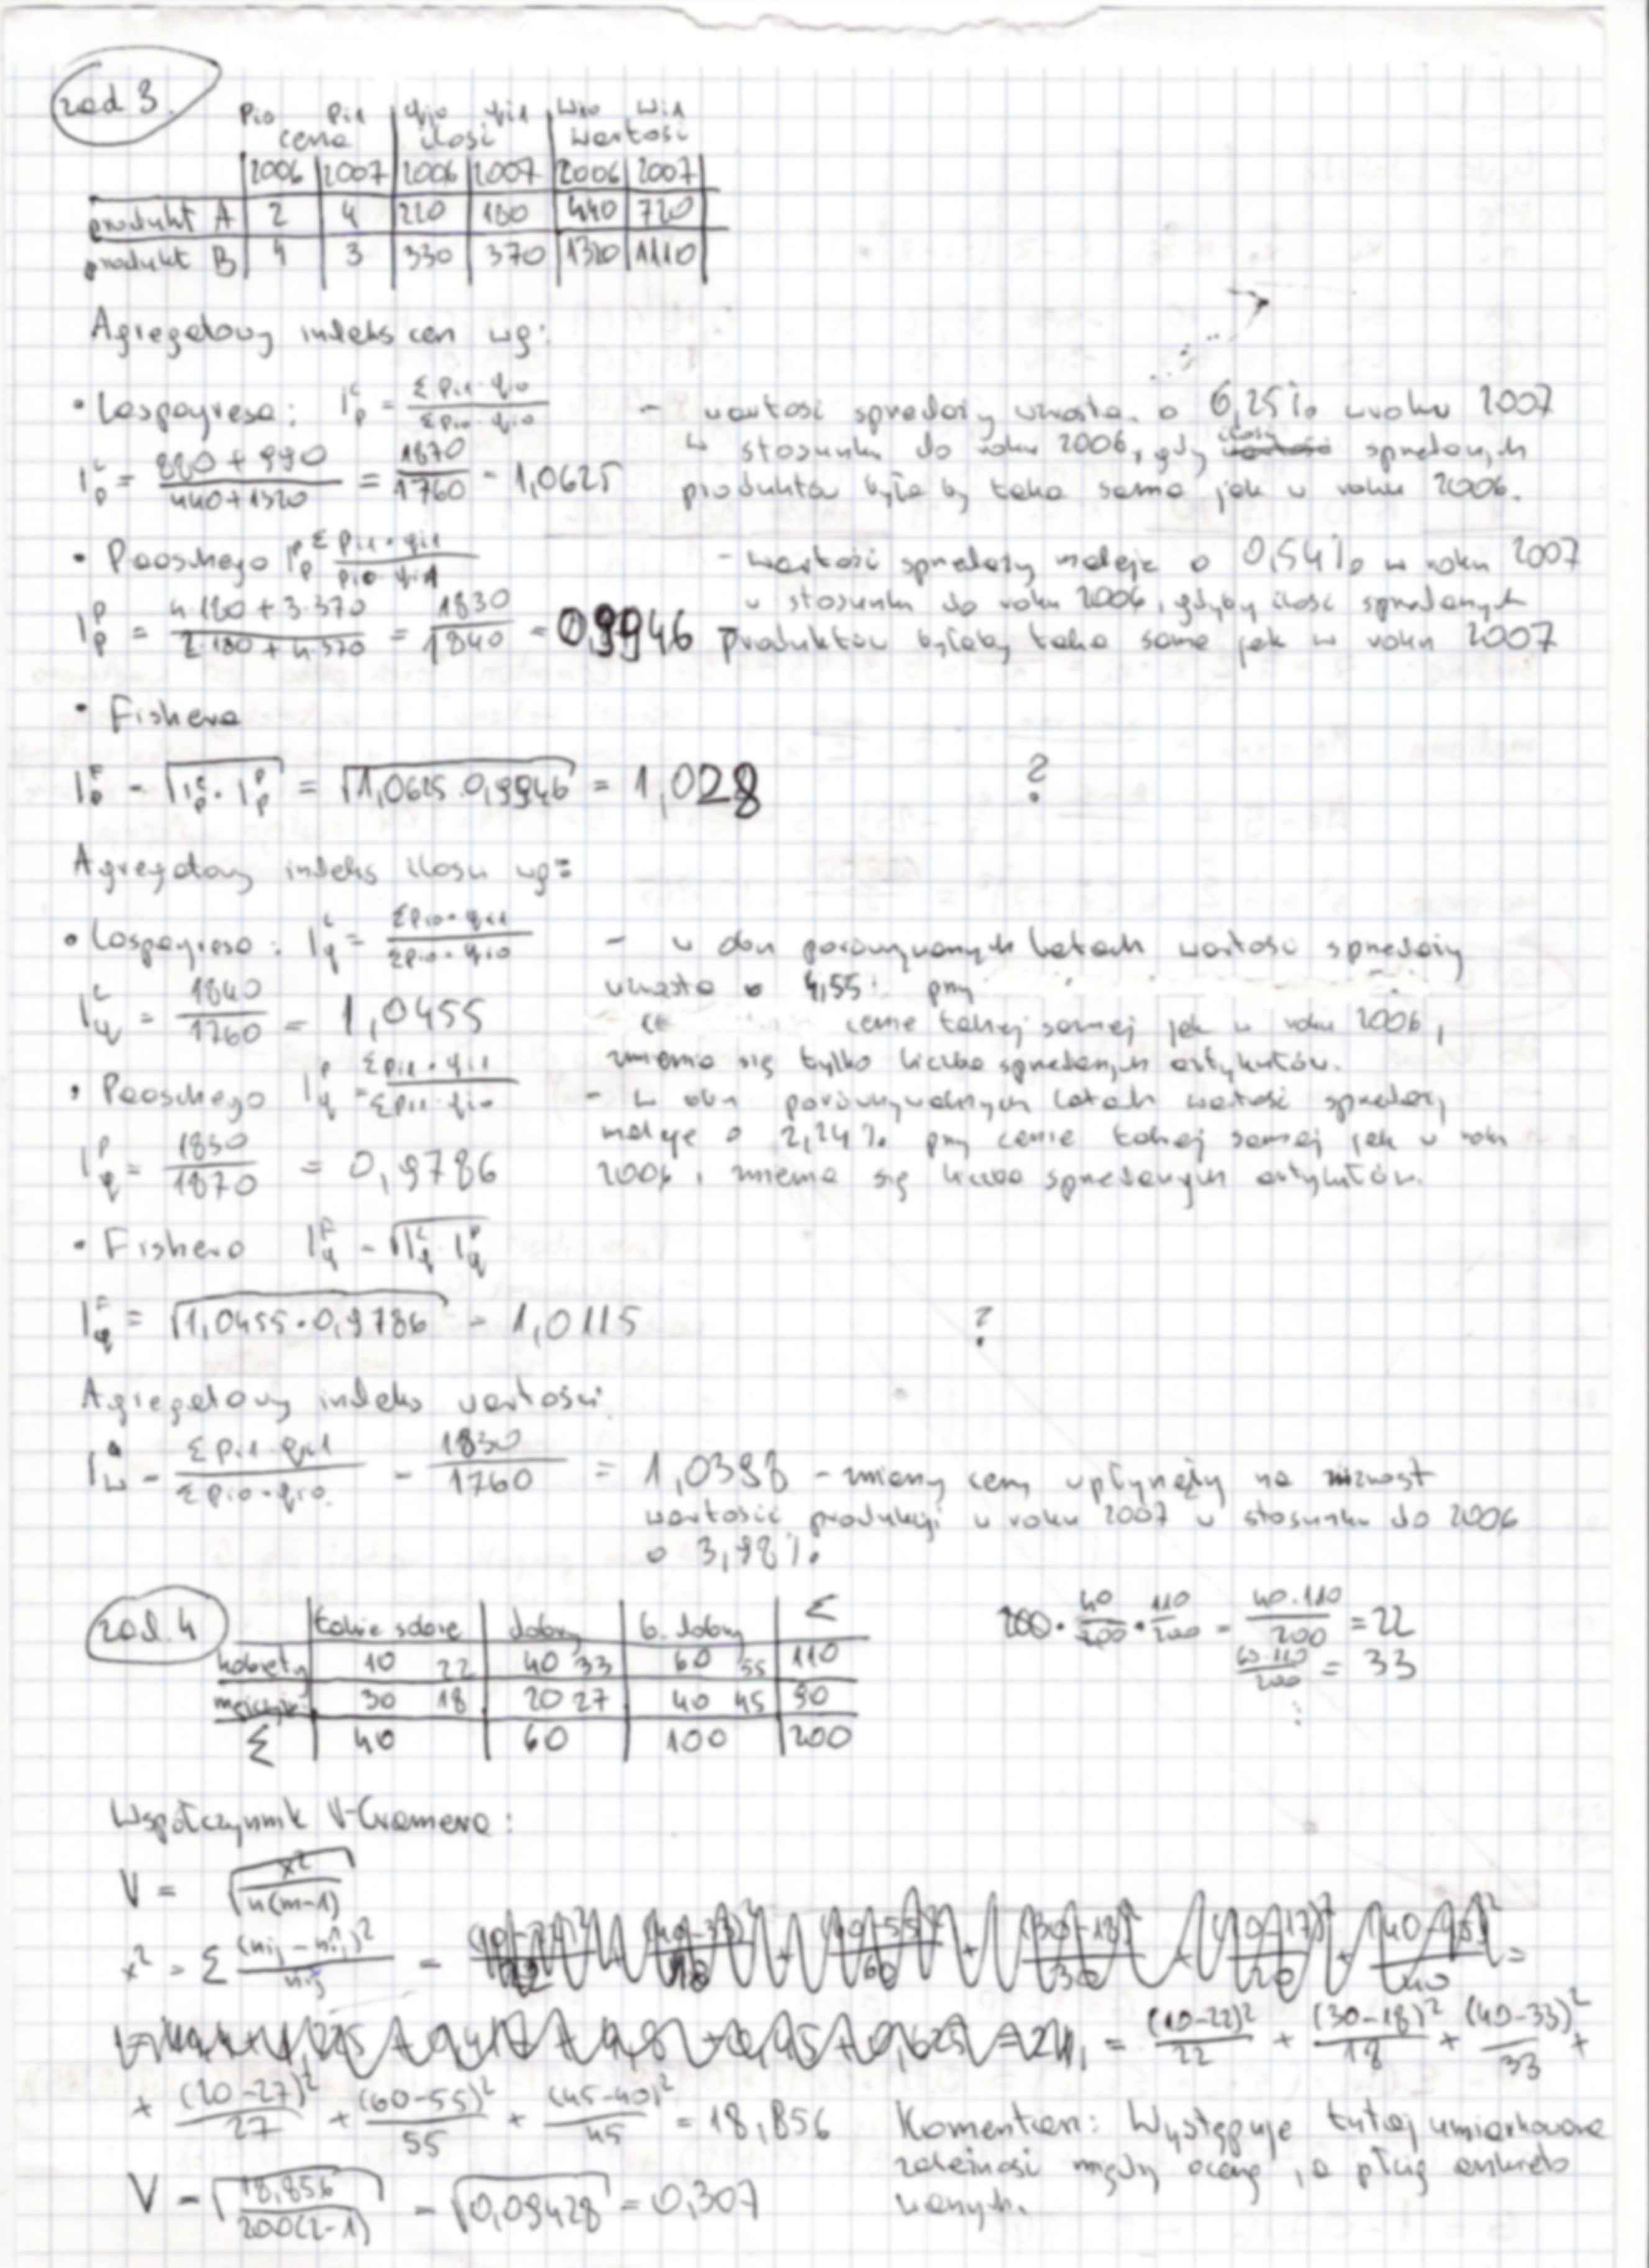 zad 3.
pi0 pi1 qi0 qi1 wi0 wi1
cena ilość wartość
2006 2007 2006 2007 2006 2007
produkt A 2 4 220 180 440 720
produkt B 4 3 330 370 1320 1110
Agregatowy indeks cen wg:
• Laspeyresa: I_p^L = Σpi1·qi0 / Σpi0·qi0 – wartość sprzedaży wzrosła o 6,25% w roku 2007
I_p^L = 880+990 / 440+1320 = 1870/1760 = 1,0625 w stosunku do roku 2006, gdy ilość sprzedanych
produktów byłaby taka sama jak w roku 2006.
• Paaschego I_p^P Σpi1·qi1 / pi0·qi1 – wartość sprzedaży maleje o 0,54% w roku 2007
w stosunku do roku 2006, gdyby ilość sprzedanych
I_p^P = 4·180+3·370 / 2·180+4·370 = 1830/1840 = 0,9946 produktów byłaby taka sama jak w roku 2007
• Fishera
I_p^F = √(I_p^L · I_p^P) = √(1,0625·0,9946) = 1,028 ?
Agregatowy indeks ilości wg:
• Laspeyresa: I_q^L = Σpi0·qi1 / Σpi0·qi0 – w obu porównywanych latach wartość sprzedaży
wzrosła o 4,55% przy
I_q^L = 1840/1760 = 1,0455 cenie takiej samej jak w roku 2006,
zmienia się tylko liczba sprzedanych artykułów.
• Paaschego I_q^P = Σpi1·qi1 / Σpi1·qi0 – w obu porównywalnych latach wartość sprzedaży
maleje o 2,24% przy cenie takiej samej jak w roku
I_q^P = 1830/1870 = 0,9786 2006, zmienia się liczba sprzedanych artykułów.
• Fishera I_q^F = √(I_q^L · I_q^P)
I_q^F = √(1,0455·0,9786) = 1,0115 ?
Agregatowy indeks wartości
I_w = Σpi1·qi1 / Σpi0·qi0 = 1830/1760 = 1,0398 – zmiany ceny wpłynęły na wzrost
wartość produkcji w roku 2007 w stosunku do 2006
o 3,98%.
zad. 4
takie sobie dobry b. dobry Σ
kobiety 10 22 40 33 60 55 110
mężczyźni 30 18 20 27 40 45 90
Σ 40 60 100 200
200 · 40/200 · 110/200 = 40·110/200 = 22
60·110/200 = 33
⋮
Współczynnik V-Cramera:
V = √(x²/n(m-1))
x² = Σ (nij - n̂ij)² / n̂ij =
= (10-22)²/22 + (30-18)²/18 + (40-33)²/33 +
+ (20-27)²/27 + (60-55)²/55 + (45-40)²/45 = 18,856
Komentarz: Występuje tutaj umiarkowana
zależność między oceną, a płcią ankieto
wanych.
V = √(18,856/200(2-1)) = √0,09428 = 0,307